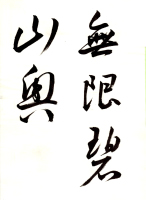 無限碧
山奥